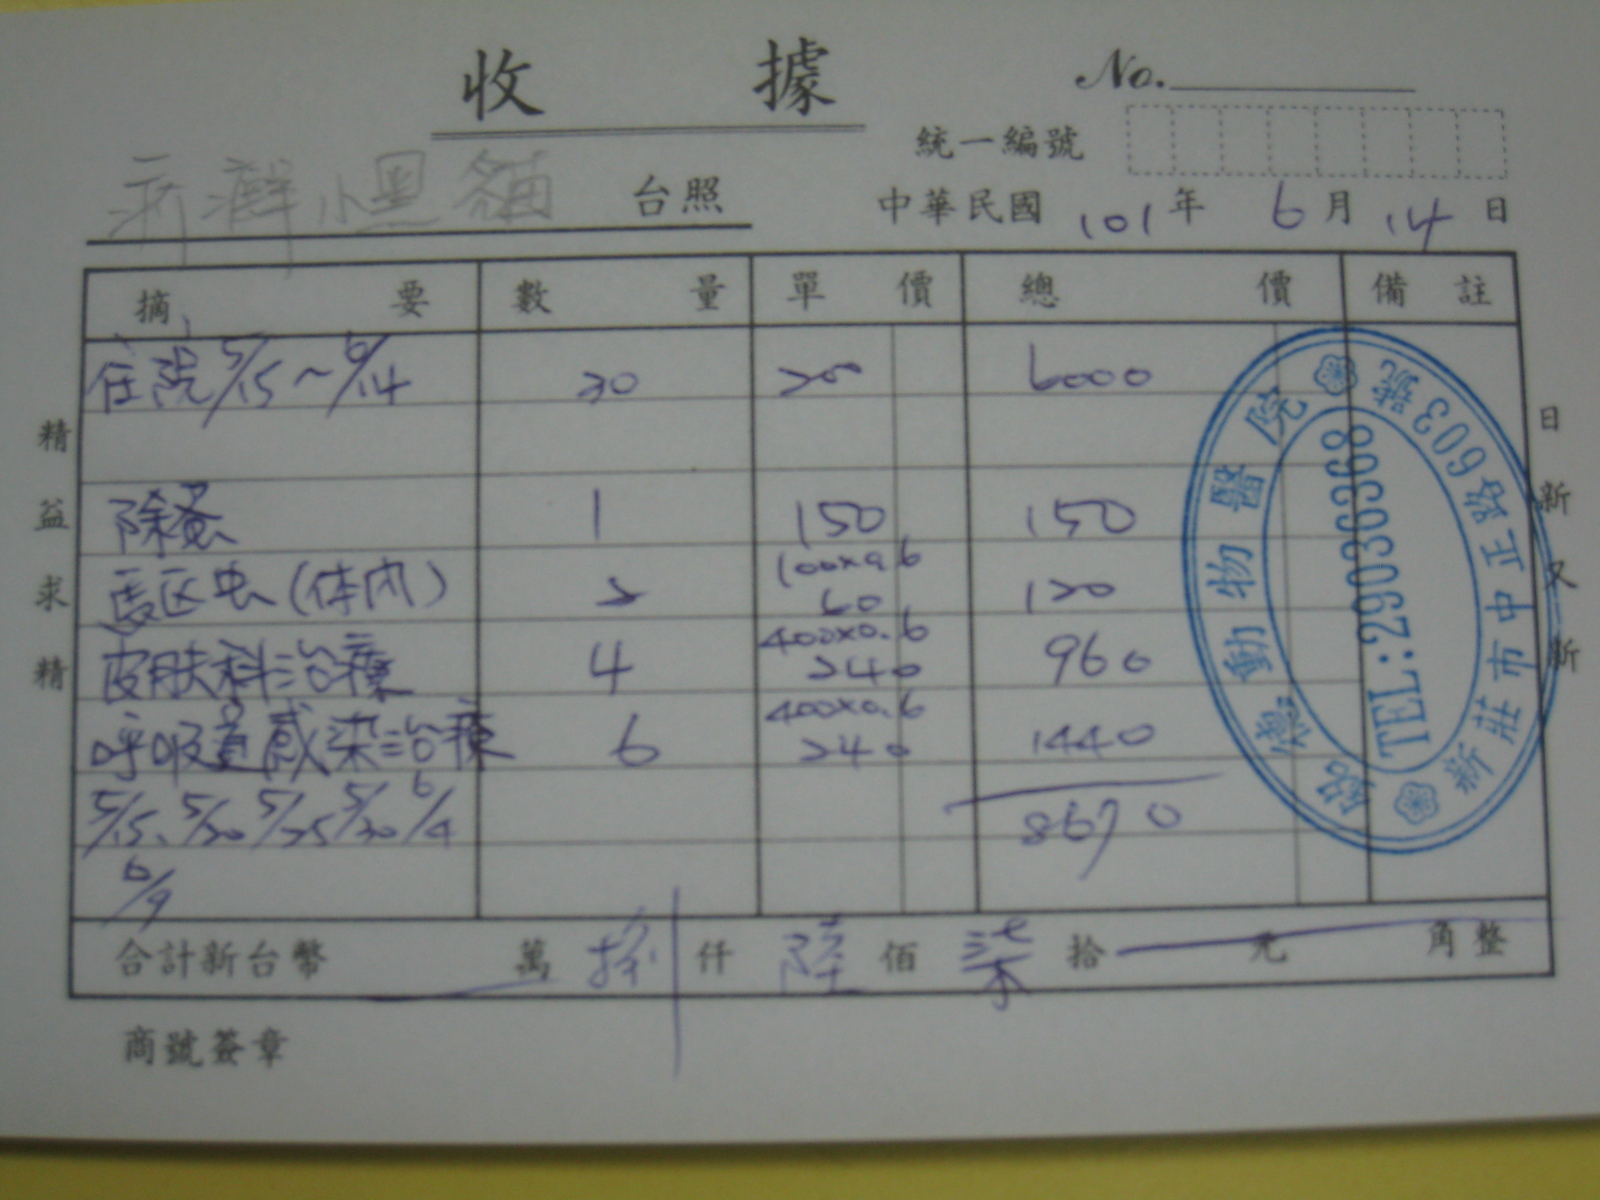 收據
No.
統一編號
小黑貓 台照
中華民國 101 年 6 月 14 日
摘要 數量 單價 總價 備註
住院 5/15~6/14 30 200 6000
除蚤 1 150 150
100x0.6
馬区虫(体内) 2 60 120
400x0.6
皮肤科治療 4 240 960
400x0.6
呼吸道感染治療 6 240 1440
5/15、5/20 5/25 5/30 6/4
8670
6/9
合計新台幣 萬 捌 仟 陸 佰 柒 拾 元 角整
商號簽章
精益求精
日新又新
德動物醫院
TEL:29039368
新莊市中正路603號